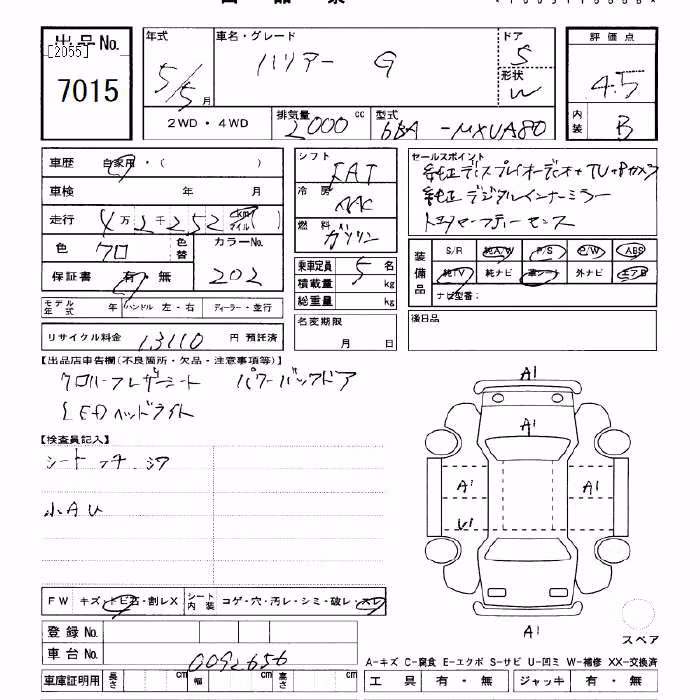 出品No.
[2055]
7015
年式
5/5月
車名・グレード
ハリアー G
ドア
5
形状
W
評価点
4.5
内装
B
2WD・4WD
排気量
2000cc
型式
6BA-MXUA80
車歴 自家用・( )
車検 年 月
走行 4万2千252 km マイル
色 クロ 色替 カラーNo. 202
保証書 有・無
モデル年式 年 ハンドル 左・右 ディーラー・並行
リサイクル料金 13110 円 預託済
シフト FAT
冷房 AAC
燃料 ガソリン
乗車定員 5 名
積載量 kg
総重量 kg
名変期限
月 日
セールスポイント
純正ディスプレイオーディオ+TV+Pカメラ
純正デジタルインナーミラー
トヨタセーフティーセンス
装備品
S/R 純A/W P/S P/W ABS
純TV 純ナビ 革シート 外ナビ エアB
ナビ型番:
後日品
【出品店申告欄(不良箇所・欠品・注意事項等)】
クロハーフレザーシート パワーバックドア
LEDヘッドライト
【検査員記入】
シート スレ シワ
小AU
A1
A1
A1
A1
U1
A1
スペア
FW キズ・トビ石・割レX シート内装 コゲ・穴・汚レ・シミ・破レ・スレ
登録No.
車台No. 0092656
車庫証明用 長さ cm 幅 cm 高さ cm
A-キズ C-腐食 E-エクボ S-サビ U-凹ミ W-補修 XX-交換済
工具 有・無 ジャッキ 有・無